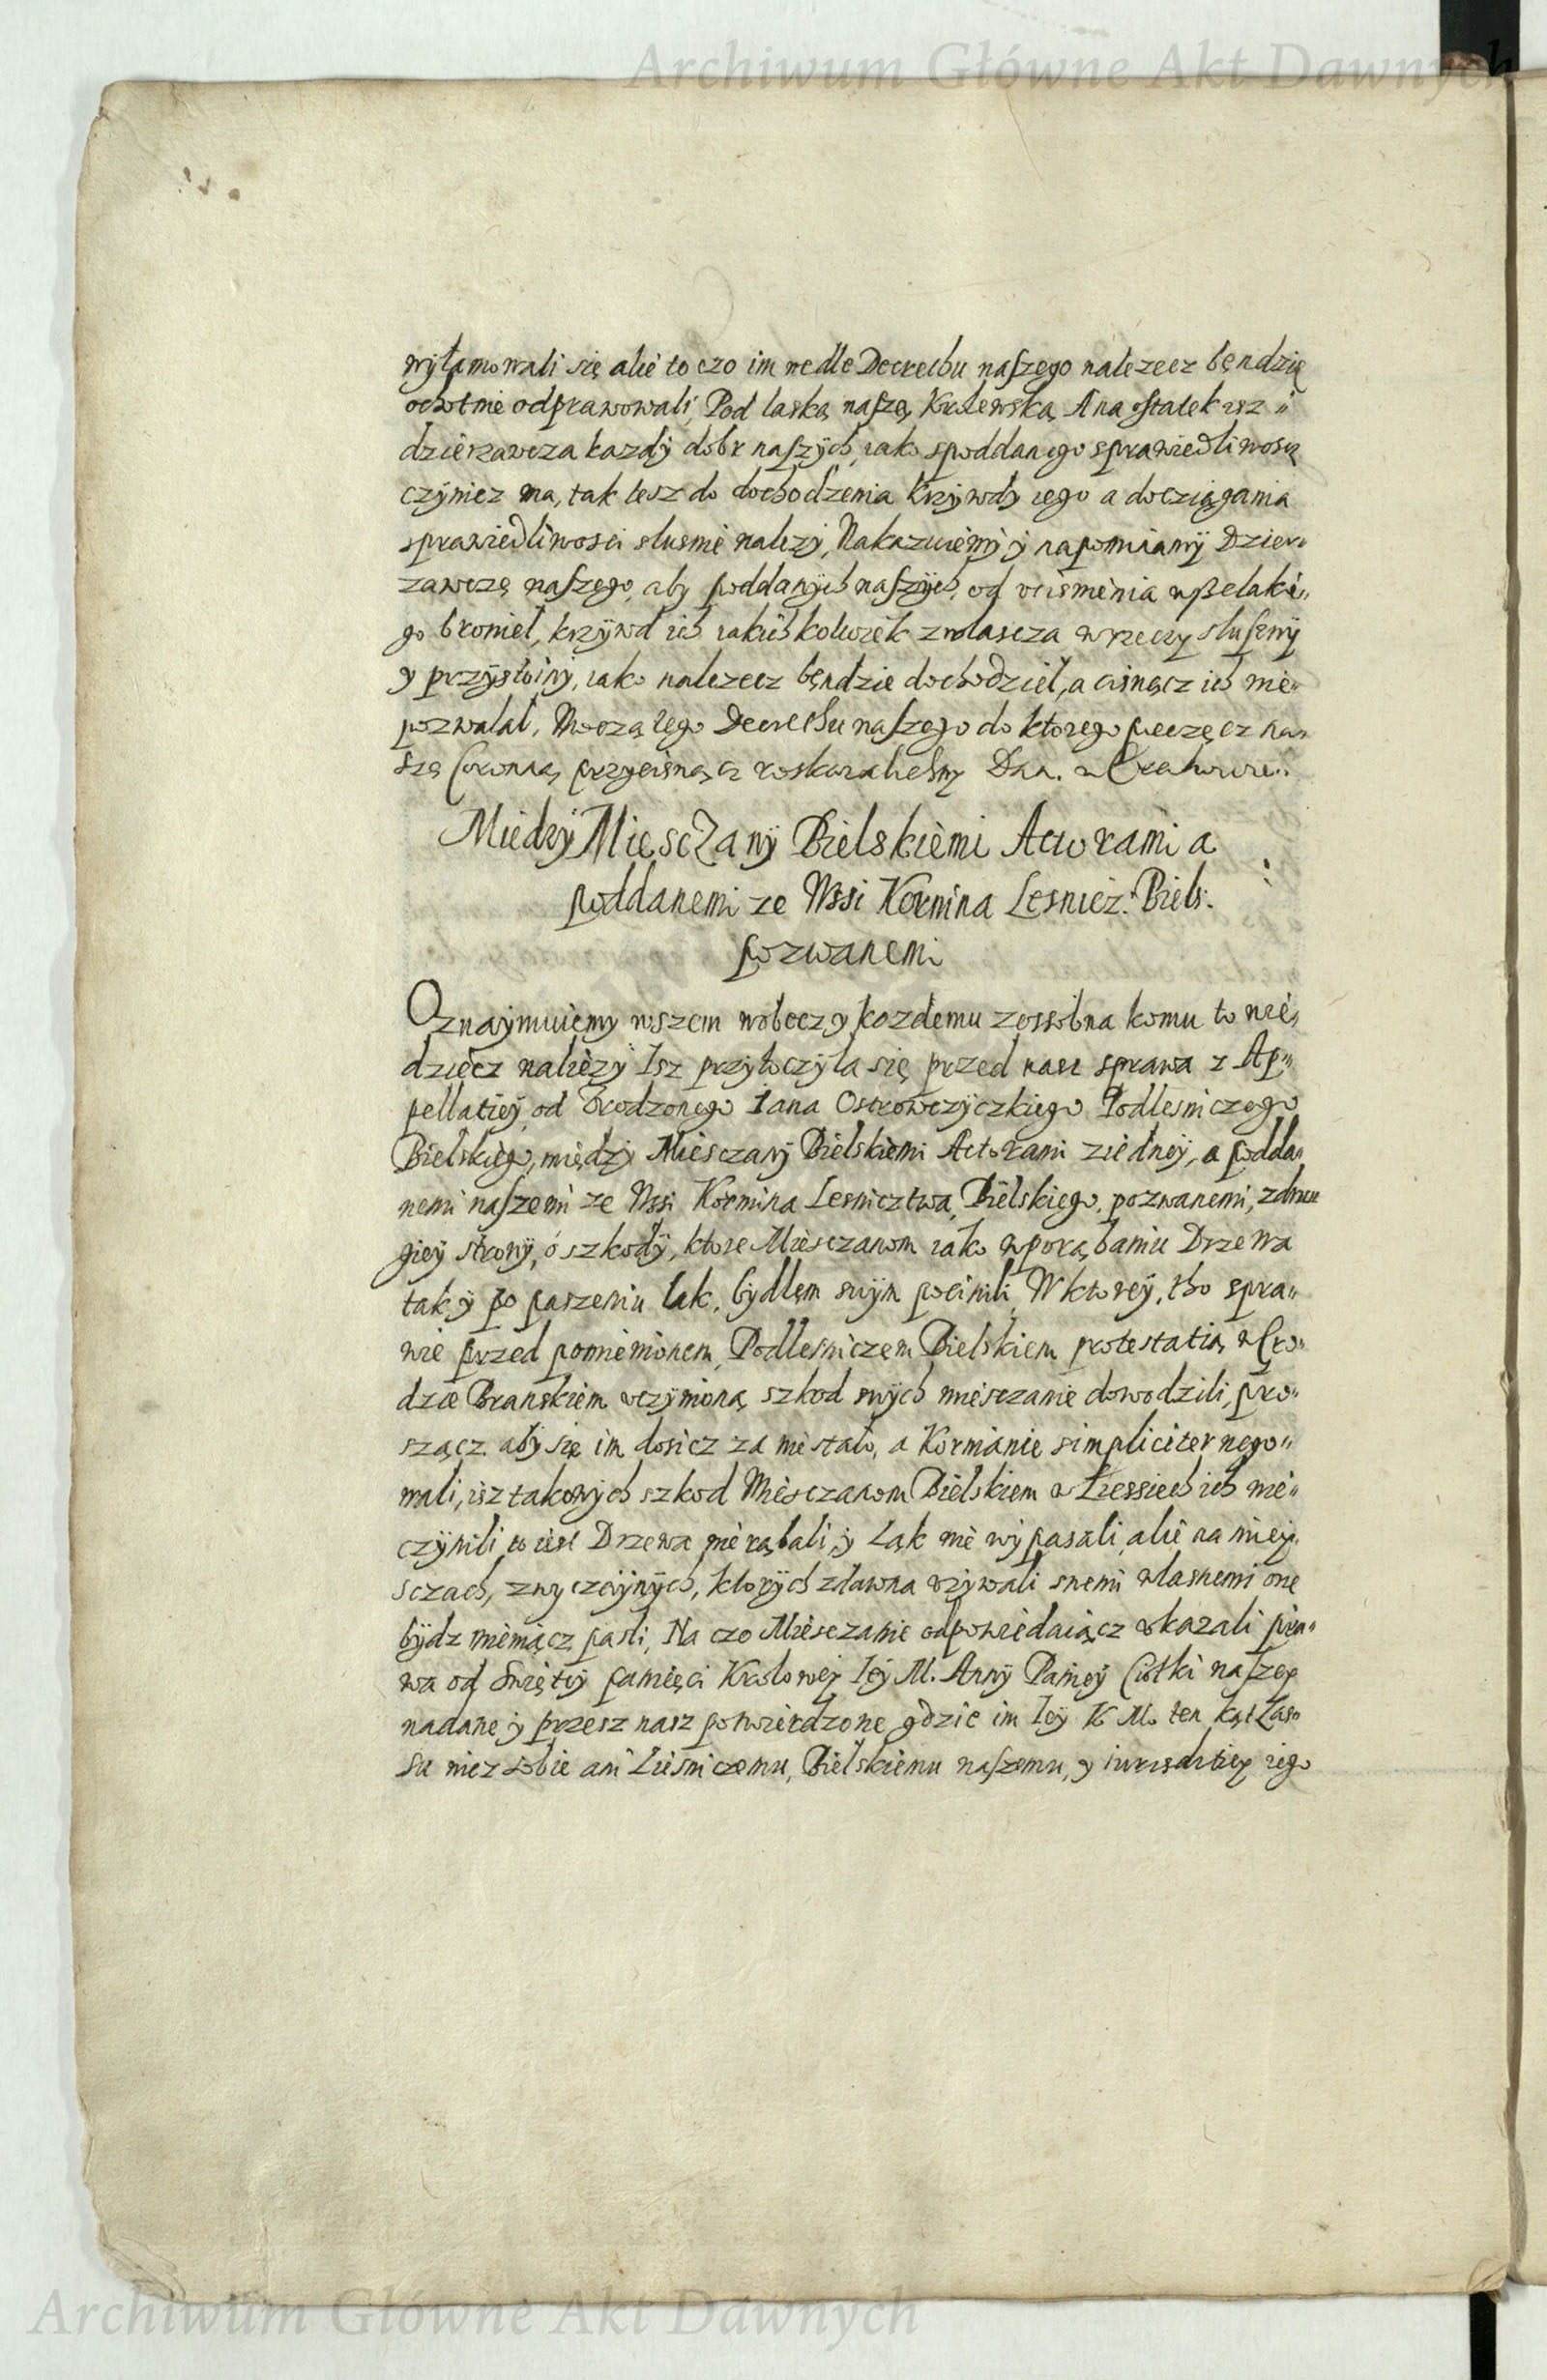 Archiwum Główne Akt Dawnych
wyłamowali się alie to czo im wedle Decrethu naszego nalezecz będzie
ochotnie odprawowali, Pod laską naszą Krolewską, A na ostatek isz
dzierzawcza kazdy dobr naszych, iako spoddanego sprawiedliwoscz
czynicz ma, tak tesz do dochodzenia Krzywdy iego a docziągania
sprawiedliwosci slusnie nalezy, Nakazuiemy y napominamy Dzier„
zawczę naszego, aby poddanych naszych, od ucisnienia wszelakie„
go broniel, krzywd ich iakichkolwiek zwlascza w rzeczy slusznÿ
y przystoiny, iako nalezecz będzie dochodziel, a cisnącz ich nie„
pozwalal, Moczą tego Decrethu naszego do ktorego pieczęcz na„
szę Coronną, przycisnącz roskazalismy Dan. w Crakowie.
Miedzy Miesczany Bielskiemi Actorami a
poddanemi ze Wssi Kornina Lesnicz: Biels.
pozwanemi
Oznaymuiemy wszem wobecz y kazdemu zossobna komu to wie„
dziecz nalezy Isz przytoczyla się przed nasz sprawa z Ap„
pellatiey od Urodzonego Iana Ostrowczyczkiego Podlesniczego
Bielskiego, między Miesczany Bielskiemi Actorami ziedney, a podda„
nemi naszemi ze Wssi Kornina Lesnicztwa Bielskiego, pozwanemi, zdru„
giey strony, o szkody, ktore Miesczanom iako w porąbaniu Drzewa
tak y po paszeniu łąk, bydlem swym pocinili, W ktorey, tho spra„
wie przed pomienionem Podlesniczem Bielskiem protestatią w Gro„
dzie Branskiem uczynioną szkod swych miesczanie dowodzili, pro„
szącz aby się im dosicz za nie stalo, a Kornianie simpliciter nego„
wali, isz takowych szkod Miesczanom Bielskiem w Liessiech ich nie„
czynili to iest Drzewa nie rąbali, y Ląk nie wypasali, alie na miey„
sczach, zwyczaynych, ktorych zdawna uzywali snemi wlasnemi one
bydz mieniącz pasli, Na czo Miesczanie odpowiedaiącz ukazali pra„
wa od Swiętey pamięci Krolowey Iey M. Anny Paniey Ciotki naszey
nadane y przesz nasz potwierdzone gdzie im Iey K M. ten kąt Las„
su niez sobie ani Liesniczemu, Bielskiemu naszemu, y iurisdictiey iego
Archiwum Główne Akt Dawnych